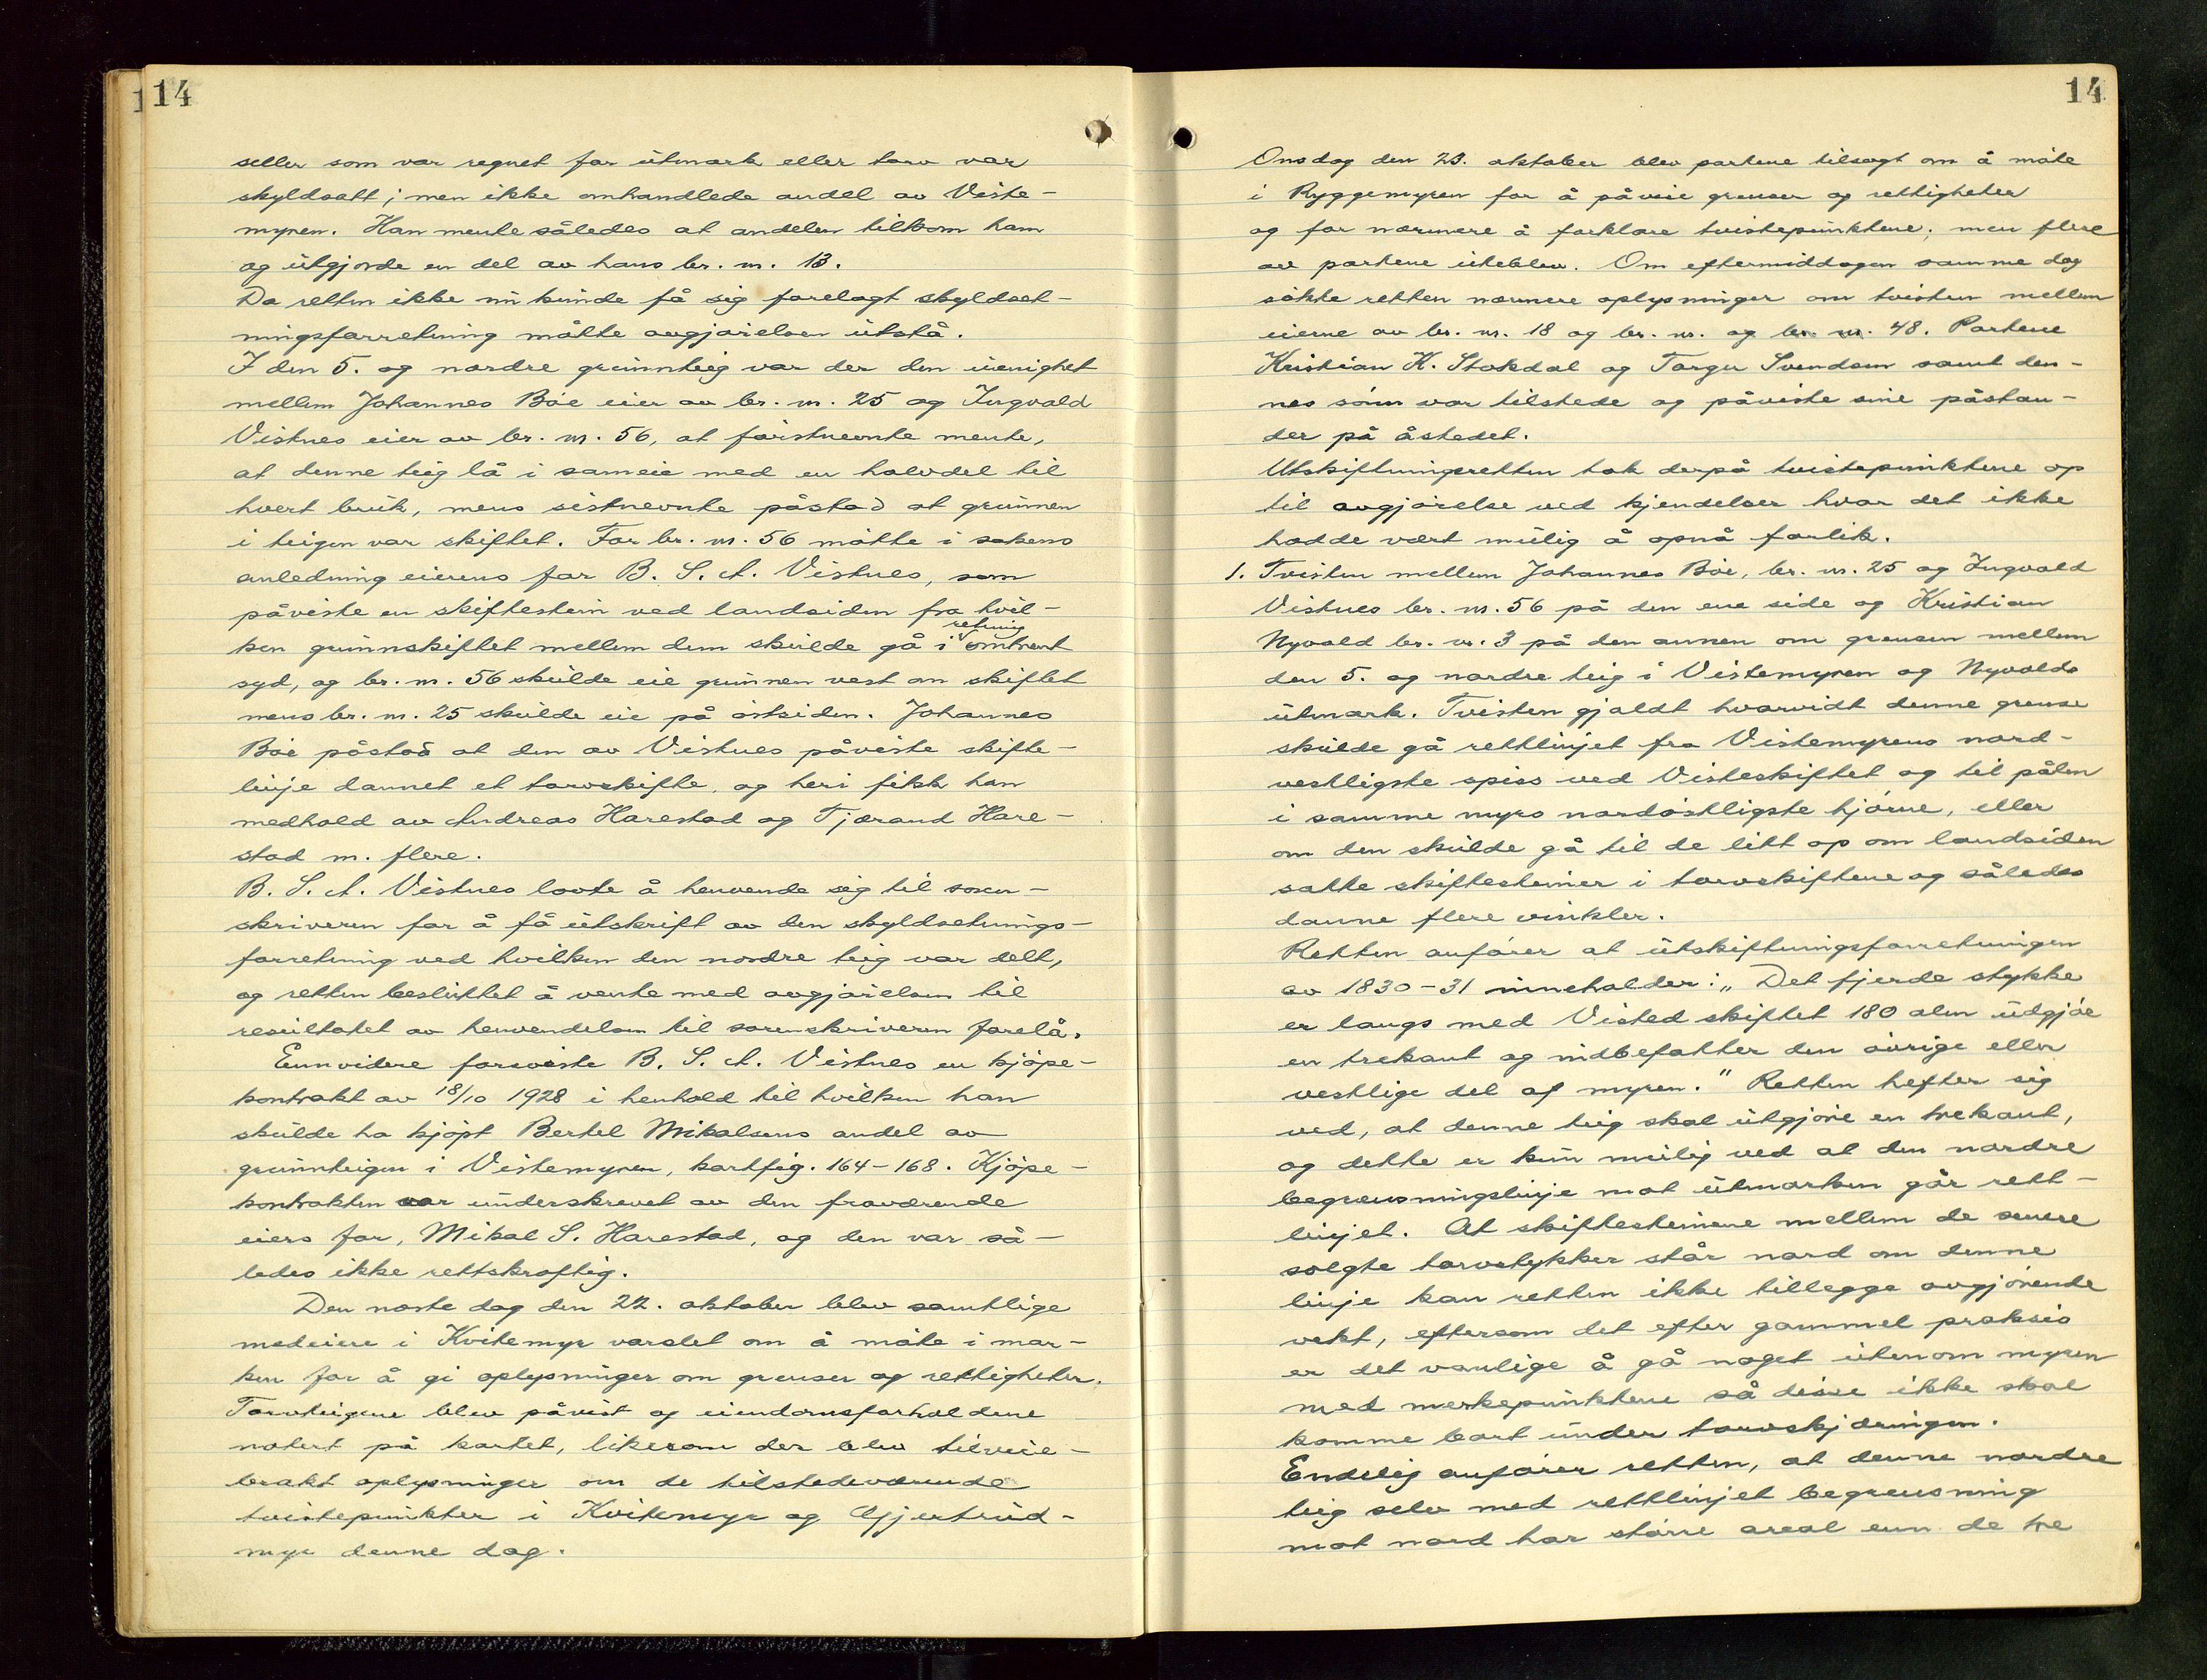 14
seller som var regnet for utmark eller torv var
skyldsatt; men ikke omhandlede andel av Viste-
myren. Han mente således at andelen tilkom ham
og utgjorde en del av hans br. nr. 13.
Da retten ikke nu kunde få sig forelagt skyldset-
ningsforretning måtte avgjørelsen utstå.
I den 5. og nordre grunnteig var der den uenighet
mellem Johannes Bøe eier av br. nr. 25 og Ingvald
Vistnes eier av br. nr. 56, at førstnevnte mente,
at denne teig lå i sameie med en halvdel til
hvert bruk, mens sistnevnte påstod at grunnen
i teigen var skiftet. For br. nr. 56 møtte i sakens
anledning eierens far B. S. A. Vistnes, som
påviste en skiftestein ved landsiden fra hvil-
ken grunnskiftet mellem dem skulde gå i retning omtrent
syd, og br. nr. 56 skulde eie grunnen vest om skiftet
mens br. nr. 25 skulde eie på østsiden. Johannes
Bøe påstod at den av Vistnes påviste skifte-
linje dannet et torvskifte, og heri fikk han
medhold av Andreas Harestad og Tjærand Hare-
stad m. flere.
B. S. A. Vistnes lovte å henvende sig til soren-
skriveren for å få utskrift av den skyldsetnings-
forretning ved hvilken den nordre teig var delt,
og retten besluttet å vente med avgjørelsen til
resultatet av henvendelsen til sorenskriveren forelå.
Ennvidere foreviste B. S. A. Vistnes en kjøpe-
kontrakt av 18/10 1928 i henhold til hvilken han
skulde ha kjøpt Bertel Mikalsens andel av
grunnteigen i Vistemyren, kartfig. 164-168. Kjøpe-
kontrakten var underskrevet av den fraværende
eiers far, Mikal S. Harestad, og den var så-
ledes ikke rettskraftig.
Den næste dag den 22. oktober blev samtlige
medeiere i Kvitemyr varslet om å møte i mar-
ken for å gi oplysninger om grenser og rettigheter.
Torvteigene blev påvist og eiendomsforholdene
notert på kartet, likesom der blev tilveie-
brakt oplysninger om de tilstedeværende
tvistepunkter i Kvitemyr og Gjertrud-
myr denne dag.
14
Onsdag den 23. oktober blev partene tilsagt om å møte
i Ryggemyren for å påvise grenser og rettigheter
og for nærmere å forklare tvistepunktene; men flere
av partene uteblev. Om eftermiddagen samme dag
søkte retten nærmere oplysninger om tvisten mellem
eierne av br. nr. 18 og br. nr. og br. nr. 48. Partene
Kristian K. Stokdal og Torger Svendsen samt den-
nes sønn var tilstede og påviste sine påstan-
der på åstedet.
Utskiftningsretten tok derpå tvistepunktene op
til avgjørelse ved kjendelser hvor det ikke
hadde vært mulig å opnå forlik.
1. Tvisten mellem Johannes Bøe, br. nr. 25 og Ingvald
Vistnes br. nr. 56 på den ene side og Kristian
Nyvold br. nr. 3 på den annen om grensen mellem
den 5. og nordre teig i Vistemyren og Nyvolds
utmark. Tvisten gjaldt hvorvidt denne grense
skulde gå rettlinjet fra Vistemyrens nord-
vestligste spiss ved Visteskiftet og til pålen
i samme myrs nordøstligste hjørne, eller
om den skulde gå til de litt op om landsiden
satte skiftesteiner i torvskiftene og således
danne flere vinkler.
Retten anfører at utskiftningsforretningen
av 1830-31 inneholder: „Det fjerde stykke
er langs med Visted skiftet 180 alen udgjøe
en trekant og indbefatter den øvrige eller
vestlige del af myren." Retten hefter sig
ved, at denne teig skal utgjøre en trekant,
og dette er kun mulig ved at den nordre
begrensningslinje mot utmarken går rett-
linjet. At skiftesteinene mellem de senere
solgte torvstykker står nord om denne
linje kan retten ikke tillegge avgjørende
vekt, eftersom det efter gammel praksis
er det vanlige å gå noget utenom myren
med merkepunktene så disse ikke skal
komme bort under torvskjæringen.
Endelig anfører retten, at denne nordre
teig selv med rettlinjet begrensning
mot nord har større areal enn de tre